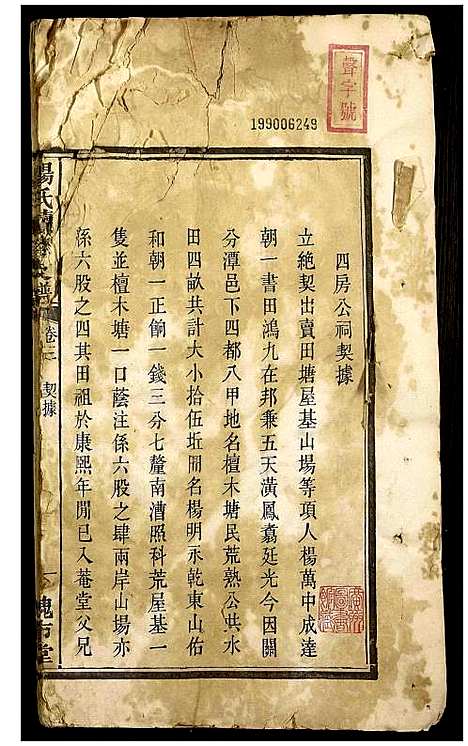 聲字號
199006249
四房公祠契據
立絶契出賣田塘屋基山場等項人楊萬中成達
朝一書田鴻九在邦秉五天潢鳳翥廷光今因關
分潭邑下四都八甲地名檀木塘民荒熟公共水
田四畝共計大小拾伍坵間名楊明永乾東山佑
和朝一正餉一錢三分七釐南漕照科荒屋基一
隻並檀木塘一口蔭注係六股之肆兩岸山場亦
係六股之四其田祖於康熙年間已入菴堂父兄
楊氏
卷二
契據
槐市堂